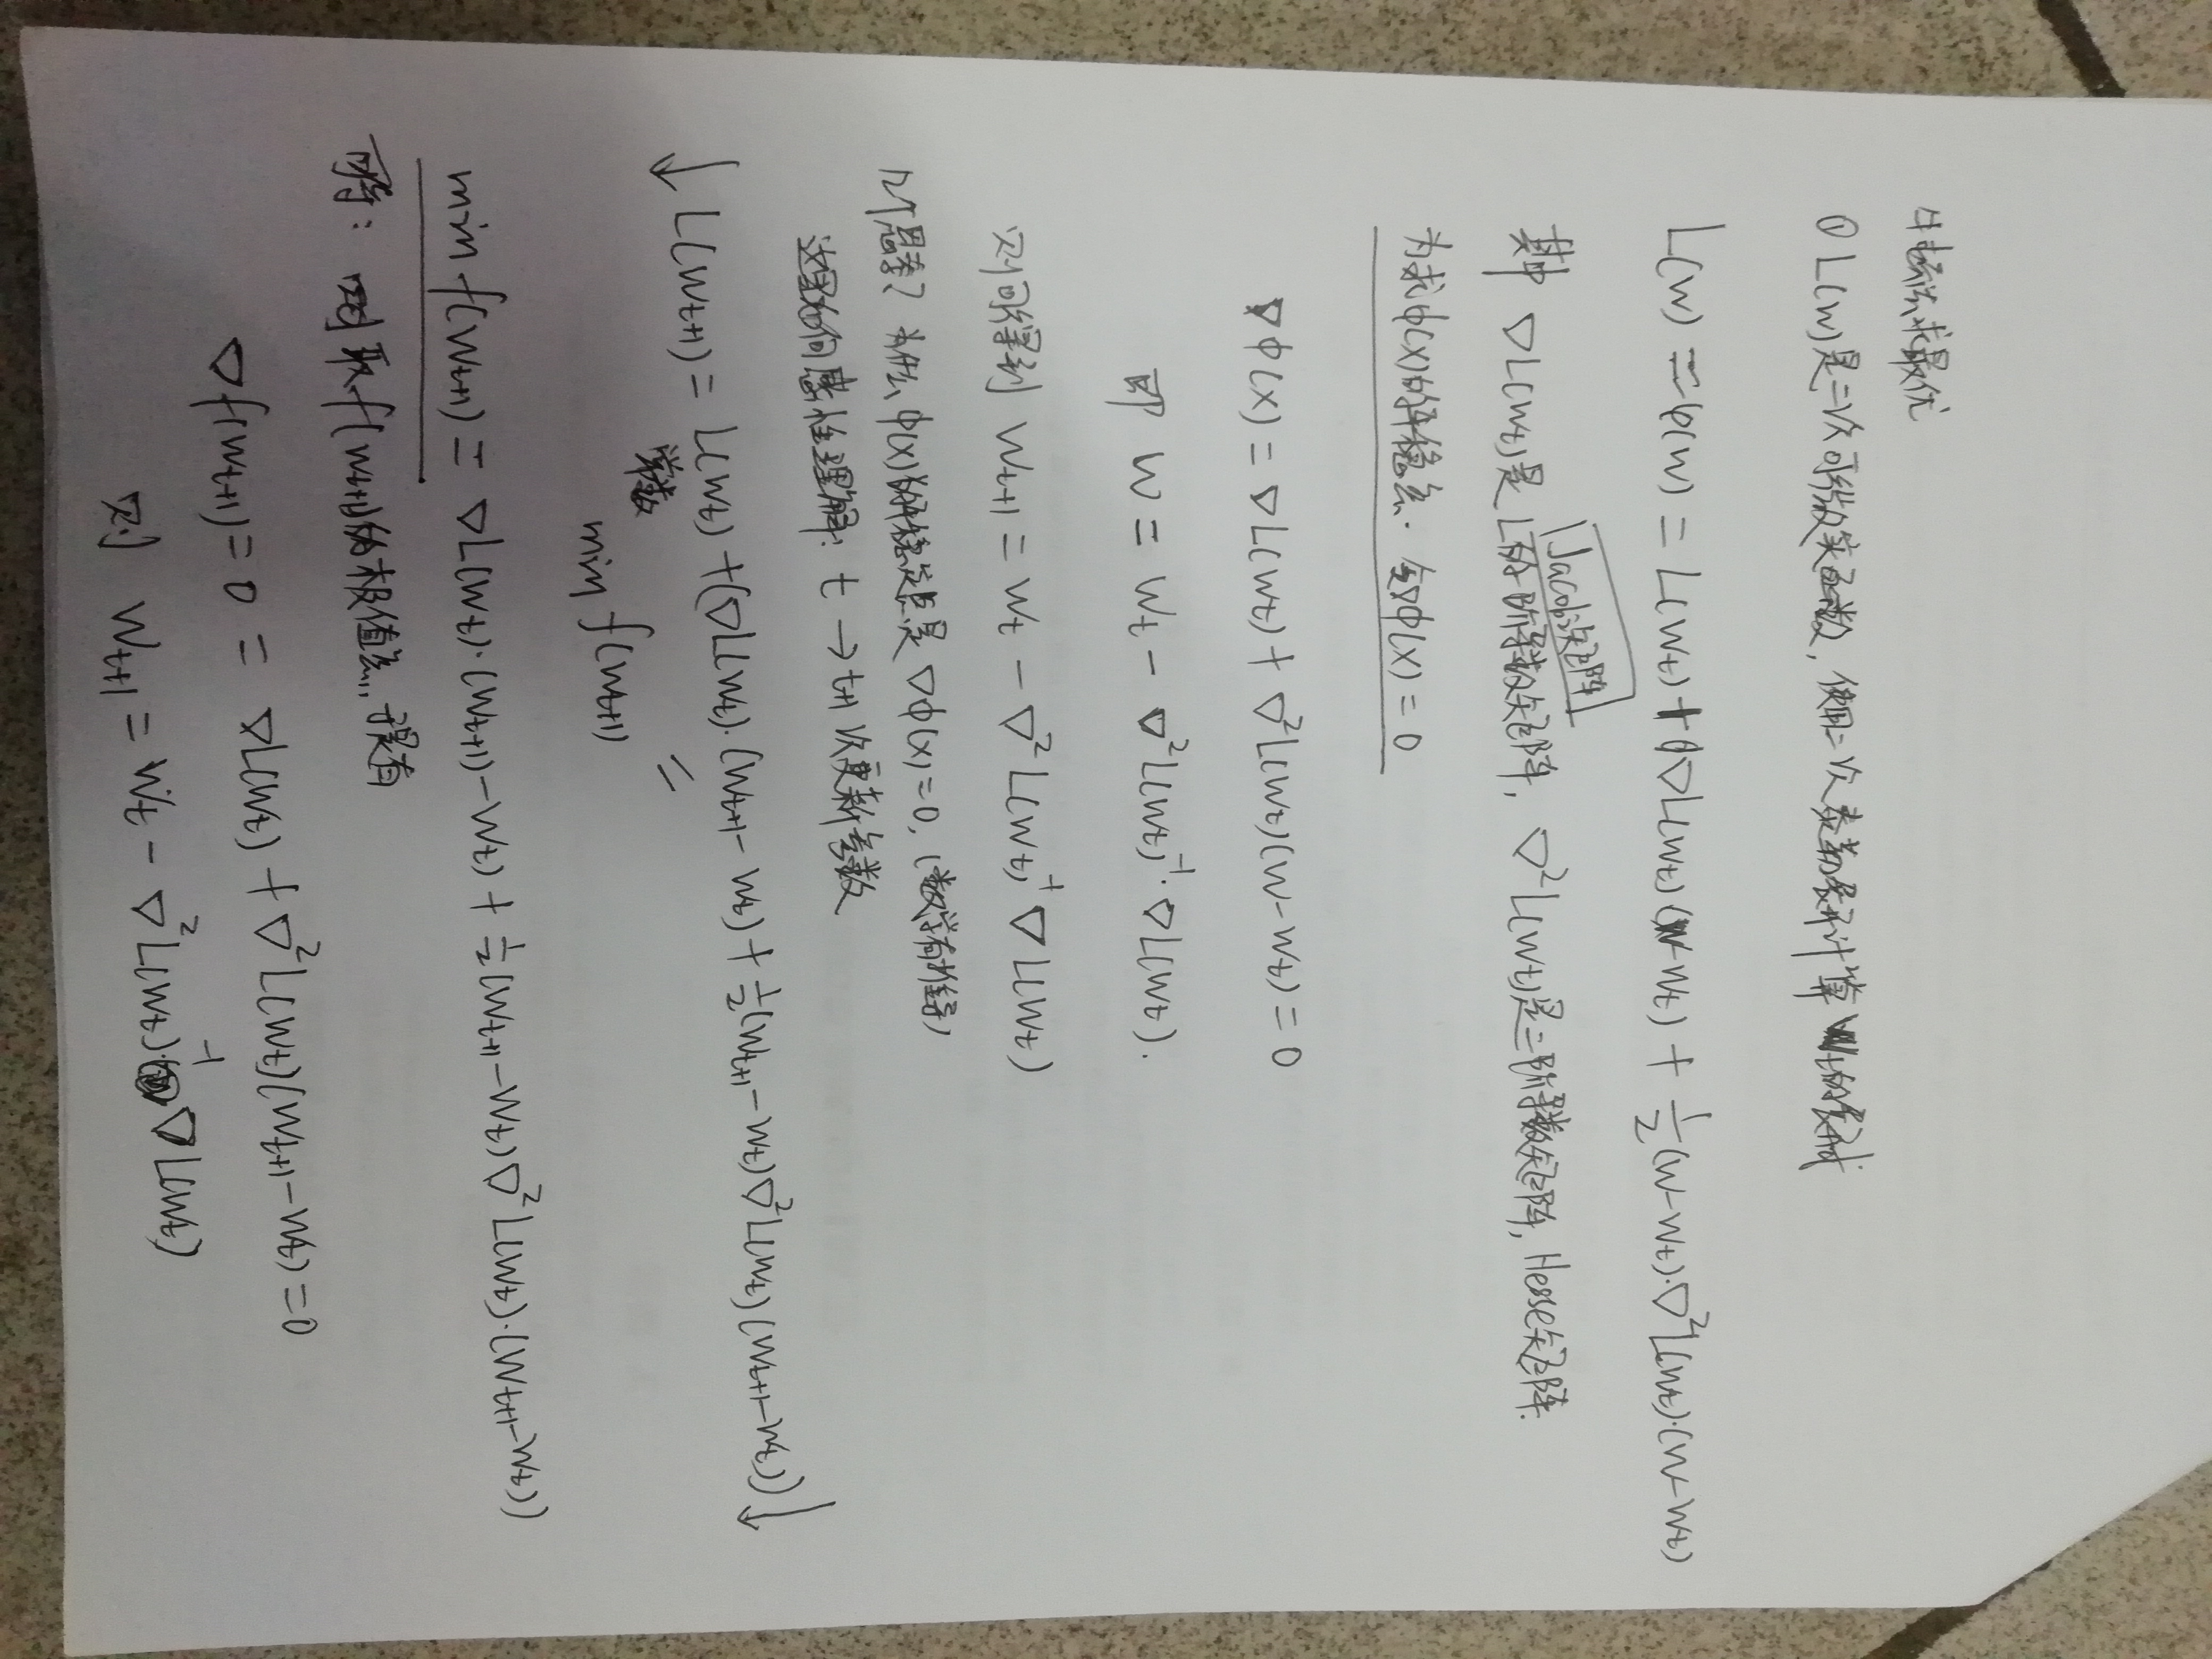 牛顿法求最优
① L(w)是二次可微实函数, 使用二次泰勒展开计算 wt的展开
L(w) ≈ φ(w) = L(wt) + ∇L(wt)(w-wt) + 1/2(w-wt)·∇²L(wt)·(w-wt)
Jacobi矩阵
其中 ∇L(wt)是L的一阶导数矩阵, ∇²L(wt)是二阶导数矩阵, Hesse矩阵.
为求φ(x)的平稳点. 令∇φ(x)=0
∇φ(x) = ∇L(wt) + ∇²L(wt)(w-wt) = 0
即 w = wt - ∇²L(wt)⁻¹·∇L(wt).
则可得到 wt+1 = wt - ∇²L(wt)⁻¹∇L(wt)
几个思考? 为什么φ(x)的稳定点是∇φ(x)=0, (数学有推导)
这里如何感性理解: t → t+1 次更新参数
↓ L(wt+1) = L(wt) + (∇L(wt)·(wt+1-wt) + 1/2(wt+1-wt)∇²L(wt)(wt+1-wt)) ↓
常数 =
min f(wt+1)
min f(wt+1) = ∇L(wt)·(wt+1)-wt) + 1/2(wt+1-wt)∇²L(wt)·(wt+1-wt))
取f(wt+1)的极值点, 有
∇f(wt+1) = 0 = ∇L(wt) + ∇²L(wt)(wt+1-wt) = 0
则 wt+1 = wt - ∇²L(wt)⁻¹∇L(wt)